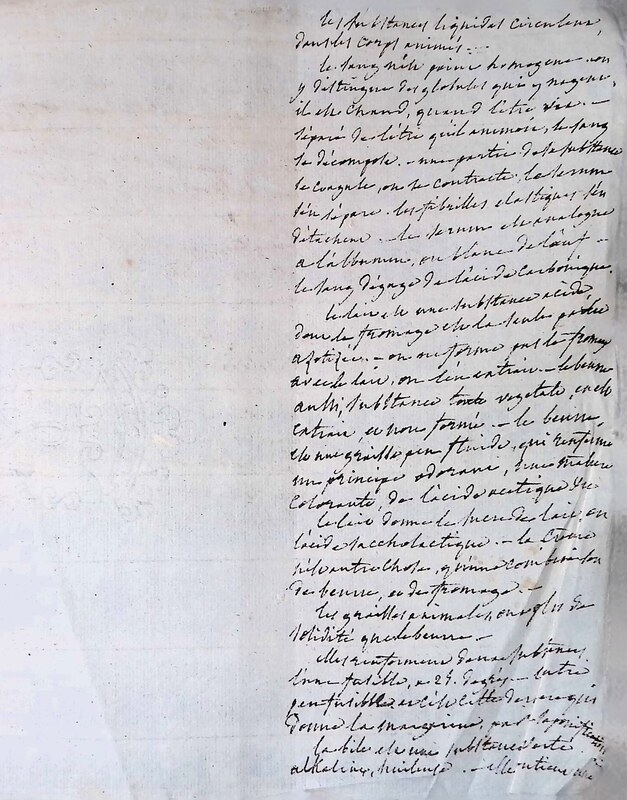 les substances liquides circulent,
dans les corps animés. -
le sang n'est point homogene. on
y distingue des globules qui y nagent,
il est chaud, quand l'être vit. -
séparé de l'être qu'il animoit, le sang
se décompose. - une partie de sa substance
se coagule, ou se contracte. le serum
s'en sépare. les fibrilles elastiques s'en
détachent. - le serum est analogue
a l'albumen, ou blanc de l'œuf -
le sang dégage de l'acide carbonique.
le lait est une substance acide,
dont le fromage est la seule partie
azotizée. - on ne forme pas le fromage
avec le lait, on l'en extrait. - le beurre
aussi, substance toute vegetale, en est
extrait, et non formé. - le beurre,
est une graisse peu fluide, qui renferme
un principe odorant, une matiere
colorante, de l'acide acetique &c
le lait donne le sucre de lait, ou
l'acide saccholactique. - la creme
n'est autre chose, qu'une combinaison
de beurre, et de fromage. -
les graisses animales, ont plus de
solidité que le beurre. -
elles renferment deux substances
l'une fusible, a 25. degrés - l'autre
peu fusible et c'est cette derniere qui
donne la margarine, par la saponification
la bile est une substance
alkaline, huileuse. - elle contient